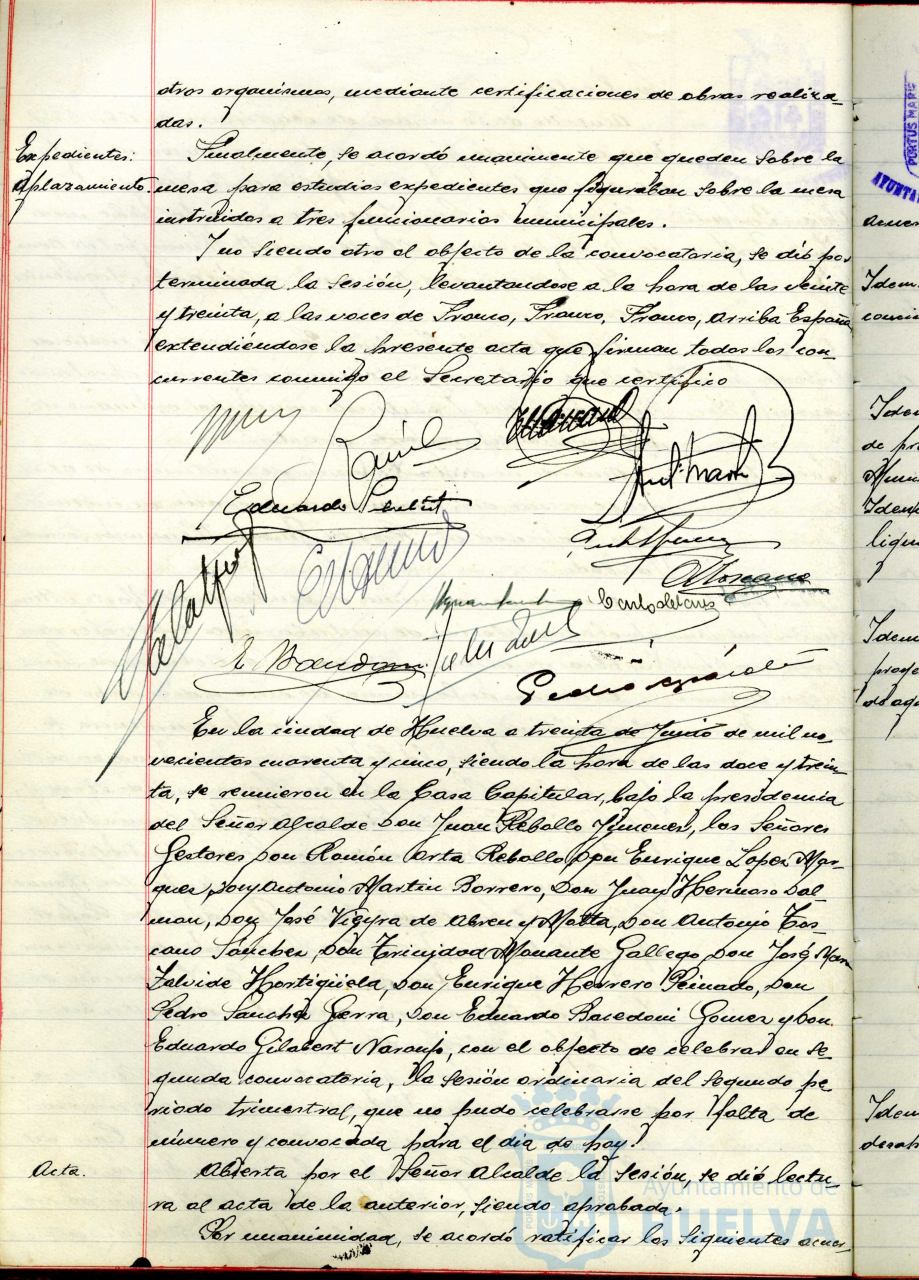 otros organismos, mediante certificaciones de obras realiza-
das.
Expedientes:
aplazamiento.
Finalmente, se acordó unanimente que queden sobre la
mesa para estudios expedientes que figuraban sobre la mesa
instruidos a tres funcionarios municipales.
Y no siendo otro el objecto de la convocatoria, se dió por
terminada la sesión, levantandose a la hora de las veinte
y treinta, a las voces de Franco, Franco, Franco, Arriba España
extendiendose la presente acta que firman todos los con-
currentes conmigo el Secretario que certifico
Eduardo
Carlos del
Pedro
En la ciudad de Huelva a treinta de Junio de mil no-
vecientos cuarenta y cinco, siendo la hora de las doce y trein-
ta, se reunieron en la Casa Capitular, bajo la presidencia
del Señor Alcalde Don Juan Rebollo Jimenez, los Señores
Gestores Don Ramón Arta Rebollo, Don Enrique Lopez Mar-
quez, Don Antonio Martin Borrero, Don Juan Hermoso Dal-
man, Don José Vizyra de Abreu y Motta, Don Antonio Tos-
cano Sanchez, Don Trinidad Monante Gallego, Don José Mar
Zalvide Hortigüela, Don Enrique Herrero Peinado, Don
Pedro Sanchez Gerra, Don Eduardo Bacedoni Gomez y Don
Eduardo Gilabert Naranjo, con el objecto de celebrar en se-
gunda convocatoria, la sesión ordinaria del segundo pe-
riodo trimestral, que no pudo celebrarse por falta de
número y convocada para el dia de hoy.
Acta.
Abierta por el Señor Alcalde la sesión, se dió lectu-
ra al acta de la anterior, siendo aprobada.
Por unanimidad, se acordó ratificar los siguientes acuer-
Ayuntamiento de
HUELVA
PORTUS MARIS
AYUNTA
Idem
Idem
de pr
Idem
Idem
Idem